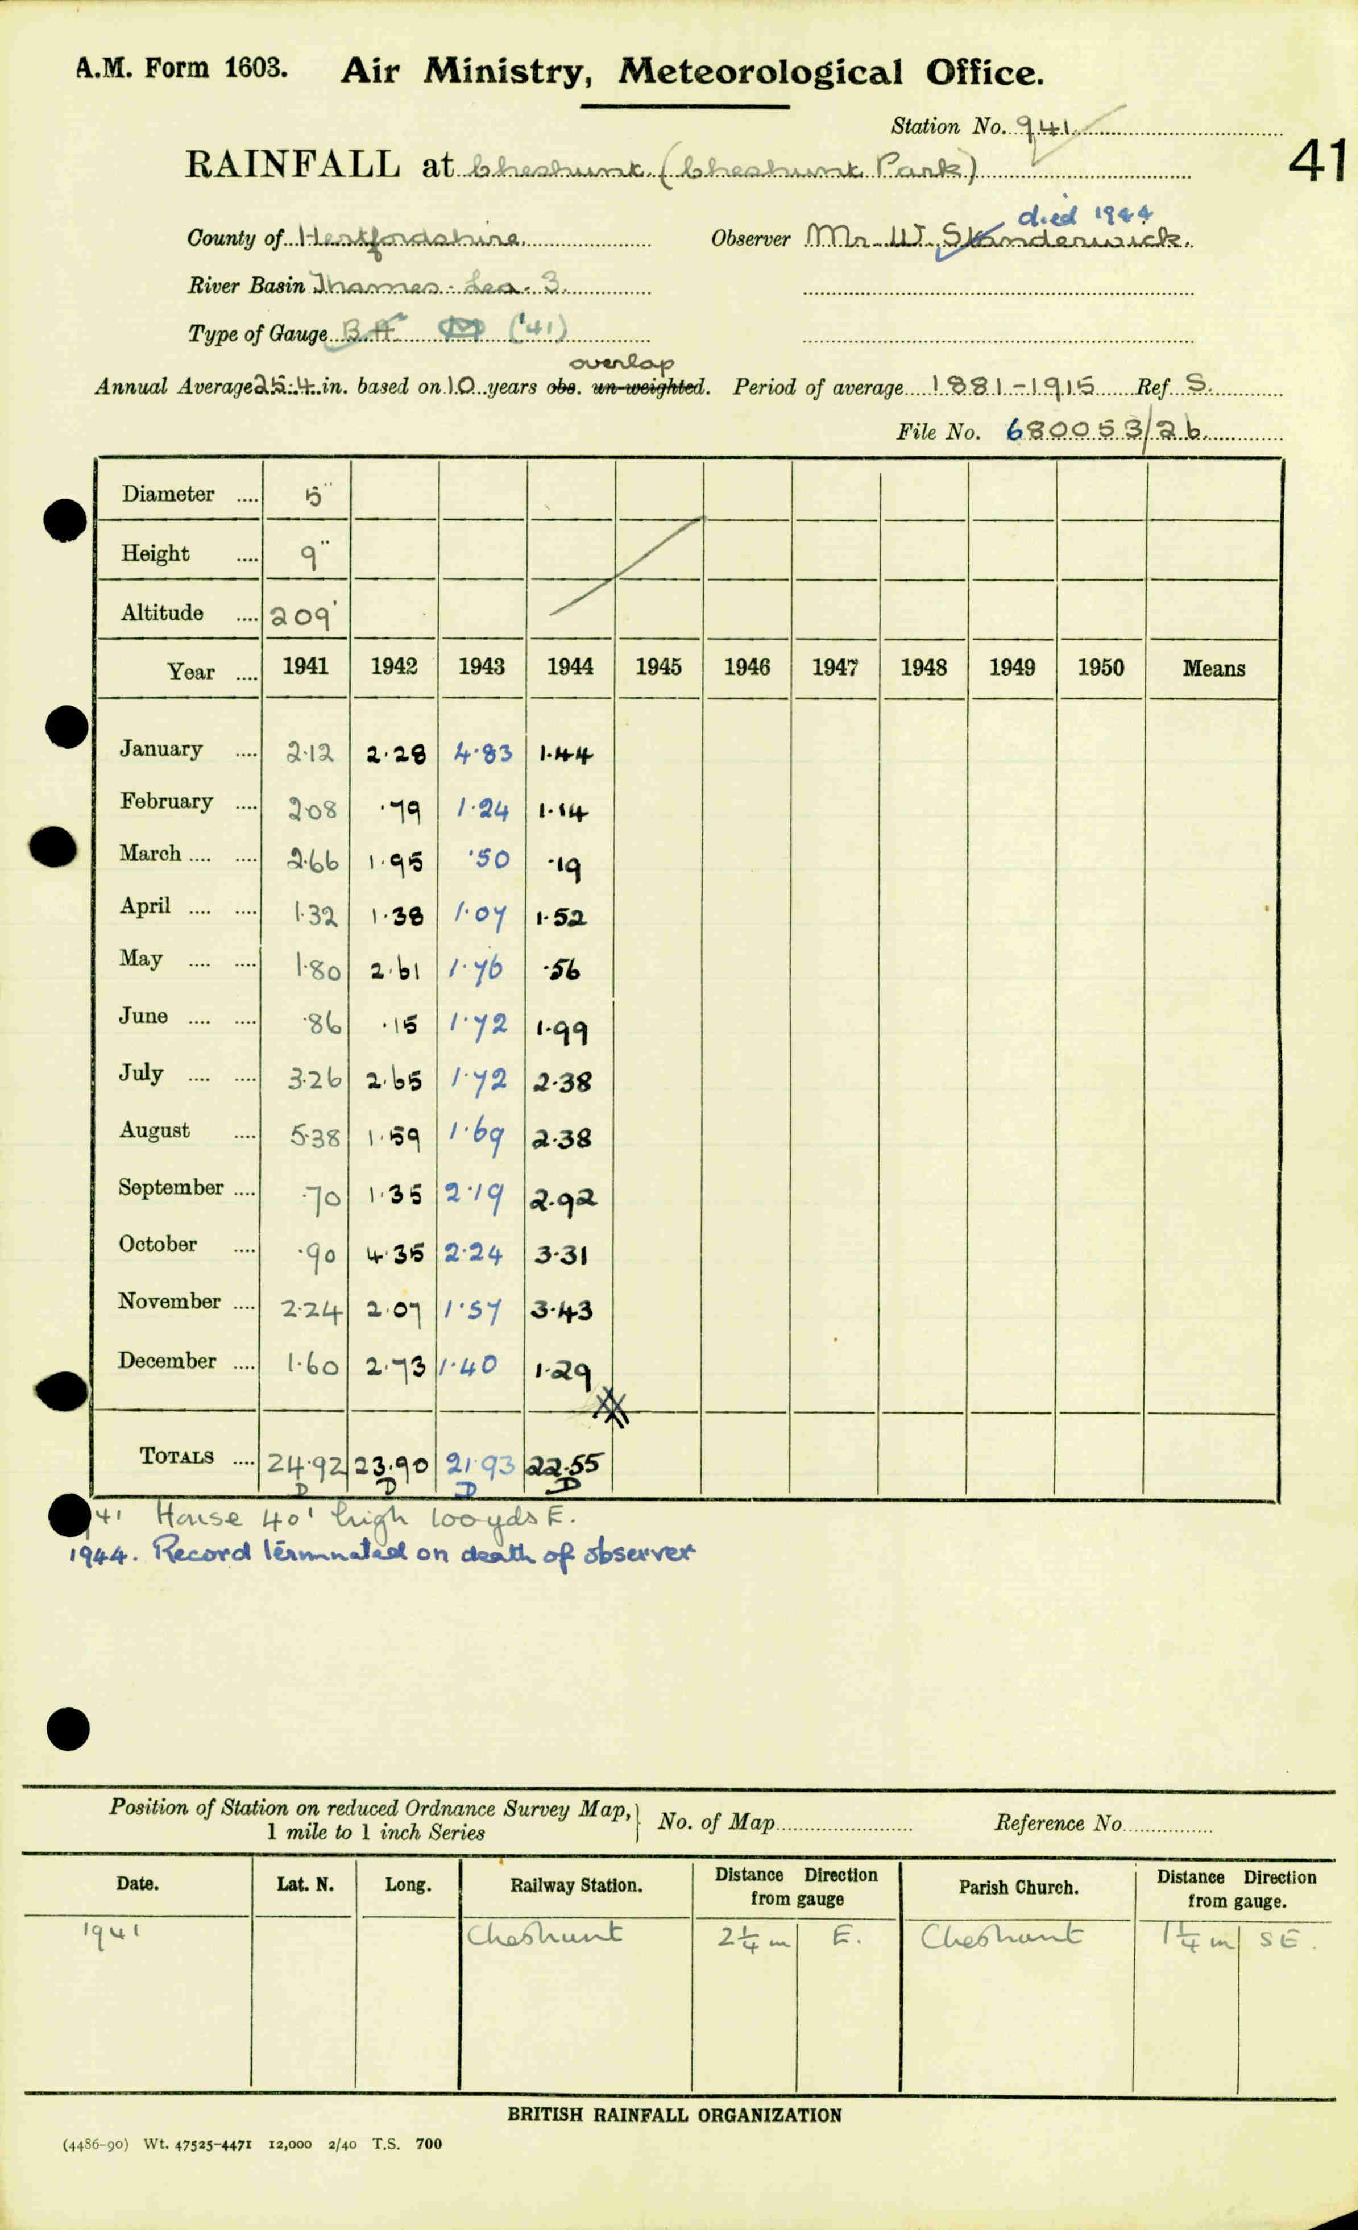 A.M. Form 1603. Air Ministry, Meteorological Office.
Station No. 941
41
RAINFALL at Cheshunt (Cheshunt Park)
died 1944
County of Hertfordshire Observer Mr. W. Skanderwick.
River Basin Thames - Lea - 3
Type of Gauge B.H. M ('41)
overlap
Annual Average 25.4 in. based on 10 years obs. un-weighted. Period of average 1881-1915 Ref S.
File No. 680053/26
Diameter .... 5"
Height .... 9"
Altitude .... 209'
Year .... 1941 1942 1943 1944 1945 1946 1947 1948 1949 1950 Means
January .... 2.12 2.28 4.83 1.44
February .... 2.08 .79 1.24 1.14
March .... .... 2.66 1.95 .50 .19
April .... .... 1.32 1.38 1.07 1.52
May .... .... 1.80 2.61 1.76 .56
June .... .... .86 .15 1.72 1.99
July .... .... 3.26 2.65 1.72 2.38
August .... 5.38 1.59 1.69 2.38
September .... .70 1.35 2.19 2.92
October .... .90 4.35 2.24 3.31
November .... 2.24 2.07 1.57 3.43
December .... 1.60 2.73 1.40 1.29
TOTALS .... 24.92 23.90 21.93 22.55
D D D D
41 House 40' high 100yds E.
1944. Record terminated on death of observer
Position of Station on reduced Ordnance Survey Map, No. of Map Reference No.
1 mile to 1 inch Series
Date. Lat. N. Long. Railway Station. Distance from gauge Direction Parish Church. Distance from gauge. Direction
1941 Cheshunt 2¼ m E. Cheshunt 1¼ m SE.
BRITISH RAINFALL ORGANIZATION
(4486-90) Wt. 47525-4471 12,000 2/40 T.S. 700